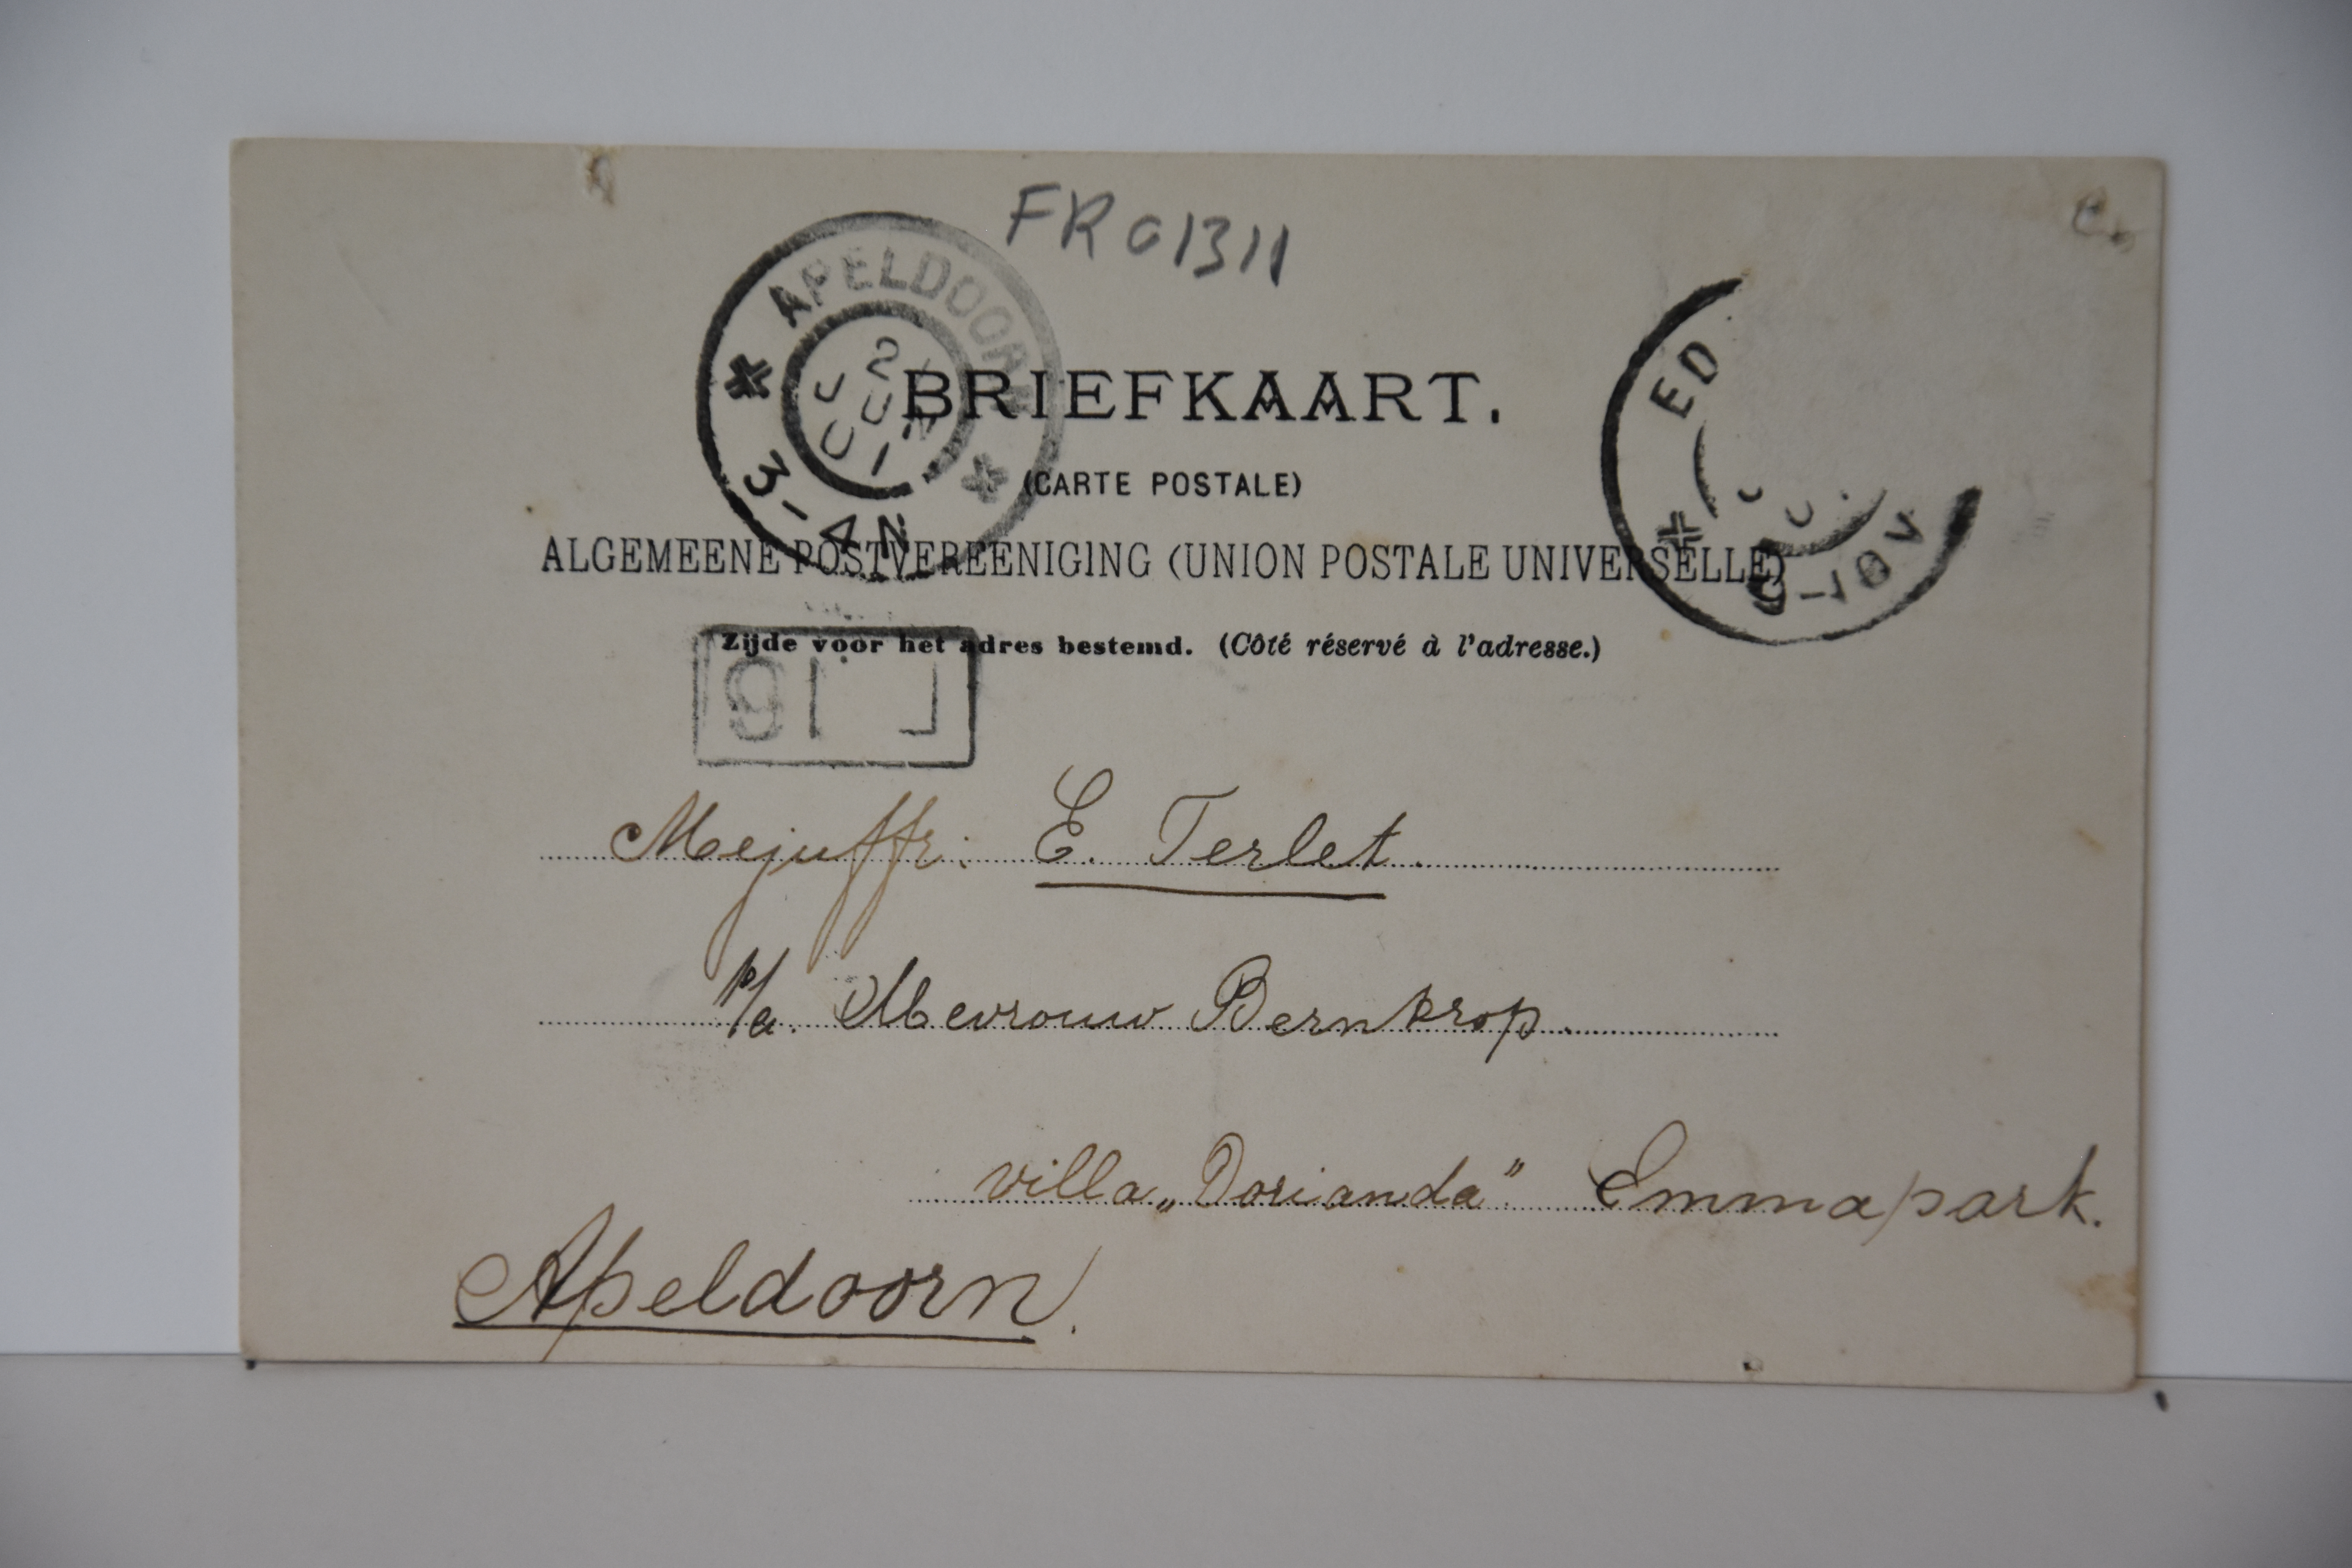 FR01311
APELDOORN
2 JUN 01
3-4N
ED
9-10V
BRIEFKAART.
(CARTE POSTALE)
ALGEMEENE POSTVEREENIGING (UNION POSTALE UNIVERSELLE)
Zijde voor het adres bestemd. (Côté réservé à l'adresse.)
Mejuffr: E. Terlet.
p/a. Mevrouw Bernkrop.
villa „Dorianda" Emmapark.
Apeldoorn.